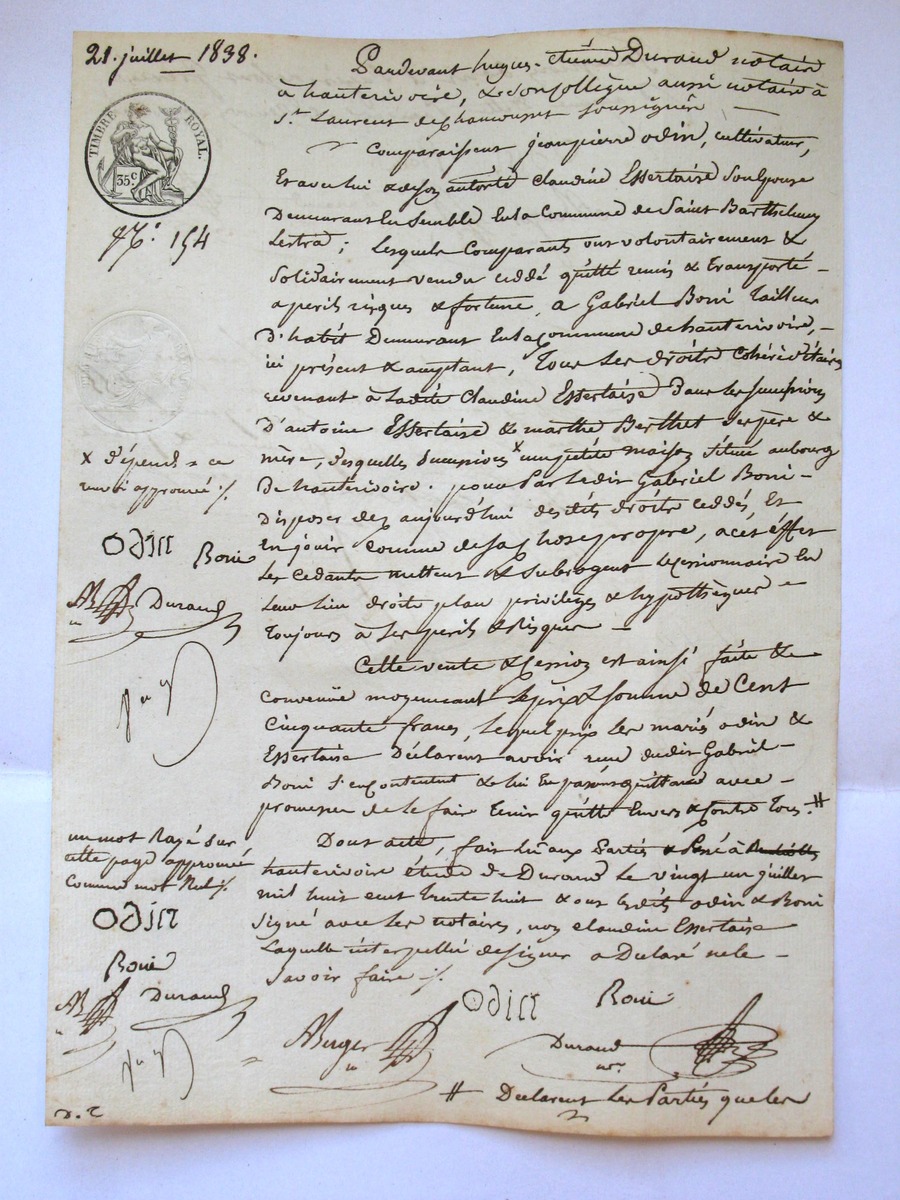 21. juillet 1838.
TIMBRE ROYAL.
35 c
N°. 154
Pardevant hugues-étienne Durand notaire
à hauterivoire, & son collègue aussi notaire à
St. Laurent de chamousset soussignés —
Comparaissent jeanpierre odin, cultivateur,
Et avec lui & de son autorité Claudine Essertaise Son Epouse
Demeurant Ensemble En la Commune de Saint Barthelemy
Lestra; Lesquels Comparants ont volontairement &
Solidairement vendu cédé quitté remis & transporté —
a perils risques & fortune, a Gabriel Boni Tailleur
D'habit Demeurant En la Commune de hauterivoire, —
ici présent & acceptant, Tous les droits cohéréditaires
revenant à Ladite Claudine Essertaise Dans les successions
D'antoine Essertaise & marthe Berthet Ses père &
mère, Desquelles successions x une petite maison Située au bourg
De hauterivoire. pour Par ledit Gabriel Boni —
Disposer dez aujourd'hui desdits droits cédés, Et
En jouir comme de sa chose propre, a cet éffet
Les Cedants mettent & subrogent le cessionnaire En
Leur lieu droits place privilèges & hypothèques —
Toujours à Ses perils & Risques —
x D'épend = ce
renvoi approuvé ./.
Odin
Boni
AB
Durand
Cette vente & Cession est ainsi faite &
convenüe moyennant le prix & somme de Cent
Cinquante francs, Lequel prix les mariés odin &
Essertaise Déclarent avoir reçu dudit Gabriel —
Boni S'en contentent & lui En passent quittance avec —
promesse de le faire Tenir quitte Envers & Contre Tous. #
Dont acte, fait lu aux Parties & Passé à
hauterivoire étude de Durand Le vingt un juillet
mil huit cent trente huit & ont lesdits odin & Boni
Signé avec les notaires, non claudine Essertaise
Laquelle interpellée de signer a Declaré ne le —
Savoir faire ./.
un mot Rayé Sur
cette page approuvé
Comme mot Nul ./.
Odin
Boni
AB
Durand
Odin
Boni
ABerger
Durand
nre.
# Declarent les Parties que les